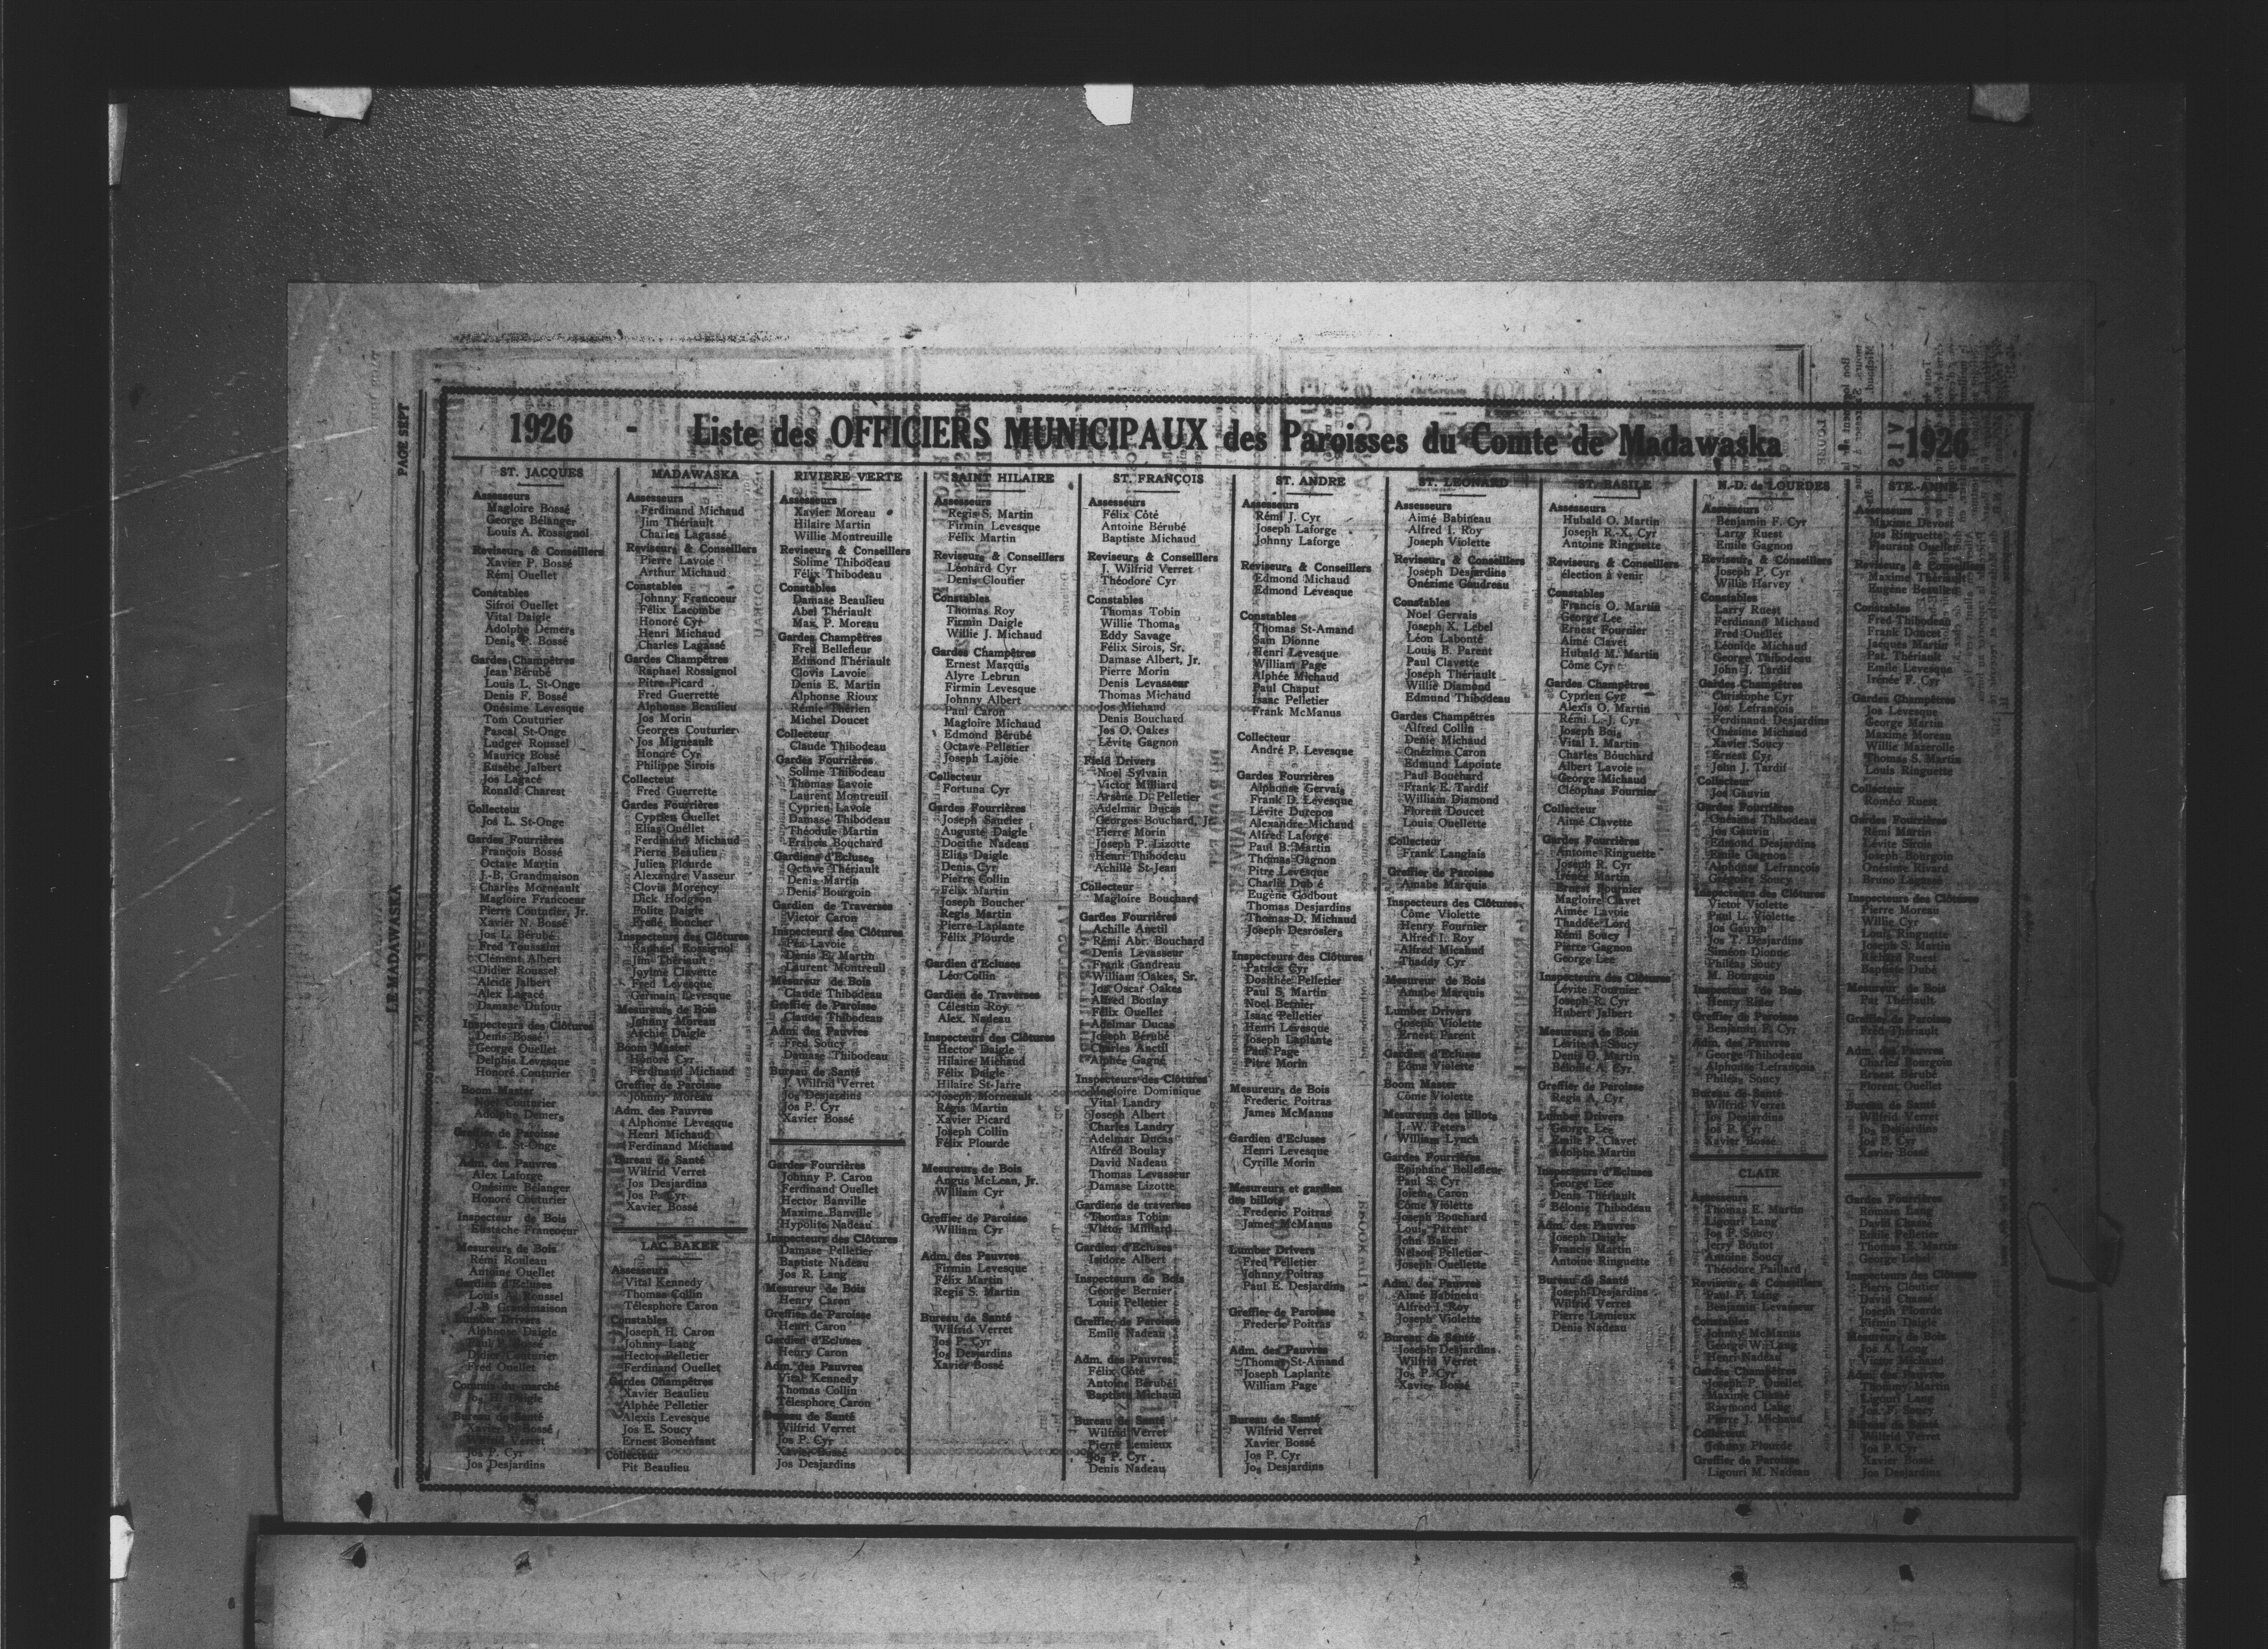 PAGE SEPT
LE MADAWASKA
1926 - Liste des OFFICIERS MUNICIPAUX des Paroisses du Comte de Madawaska 1926
ST. JACQUES
Assesseurs
Magloire Bossé
George Bélanger
Louis A. Rossignol
Reviseurs & Conseillers
Xavier P. Bossé
Rémi Ouellet
Constables
Sifroi Ouellet
Vital Daigle
Adolphe Demers
Denis P. Bossé
Gardes Champêtres
Jean Bérubé
Louis L. St-Onge
Denis F. Bossé
Onésime Levesque
Tom Couturier
Pascal St-Onge
Ludger Roussel
Maurice Bossé
Eusèbe Jalbert
Jos Lagacé
Ronald Charest
Collecteur
Jos L. St-Onge
Gardes Fourrières
François Bossé
Octave Martin
J.-B. Grandmaison
Charles Morneault
Magloire Francoeur
Pierre Couturier, Jr.
Xavier N. Bossé
Jos L. Bérubé
Fred Toussaint
Clément Albert
Didier Roussel
Alcide Jalbert
Alex Lagacé
Damase Dufour
Inspecteurs des Clôtures
Denis Bossé
George Ouellet
Delphis Levesque
Honoré Couturier
Boom Master
Noel Couturier
Adolphe Demers
Greffier de Paroisse
Jos L. St-Onge
Adm. des Pauvres
Alex Laforge
Onésime Bélanger
Honoré Couturier
Inspecteur de Bois
Eustache Francoeur
Mesureurs de Bois
Rémi Rouleau
Antoine Ouellet
Gardien d'Ecluses
Louis A. Roussel
J.-B. Grandmaison
Lumber Drivers
Alphonse Daigle
Bossé
Didier Couturier
Fred Ouellet
Commis du marché
Jos H. Daigle
Bureau de Santé
Xavier P. Bossé
Wilfrid Verret
Jos P. Cyr
Jos Desjardins
MADAWASKA
Assesseurs
Ferdinand Michaud
Jim Thériault
Charles Lagassé
Reviseurs & Conseillers
Pierre Lavoie
Arthur Michaud
Constables
Johnny Francoeur
Félix Lacombe
Honoré Cyr
Henri Michaud
Charles Lagassé
Gardes Champêtres
Raphael Rossignol
Pitre Picard
Fred Guerrette
Alphonse Beaulieu
Jos Morin
Georges Couturier
Jos Migneault
Honoré Cyr
Philippe Sirois
Collecteur
Fred Guerrette
Gardes Fourrières
Cyprien Ouellet
Elias Ouellet
Ferdinand Michaud
Pierre Beaulieu
Julien Plourde
Alexandre Vasseur
Clovis Morency
Dick Hodgson
Polite Daigle
Frelic Boucher
Inspecteurs des Clôtures
Raphael Rossignol
Jim Thériault
Joyime Clavette
Fred Levesque
Germain Levesque
Mesureurs de Bois
Johnny Moreau
Archie Daigle
Boom Master
Honoré Cyr
Ferdinand Michaud
Greffier de Paroisse
Johnny Moreau
Adm. des Pauvres
Alphonse Levesque
Henri Michaud
Ferdinand Michaud
Bureau de Santé
Wilfrid Verret
Jos Desjardins
Jos P. Cyr
Xavier Bossé
LAC BAKER
Assesseurs
Vital Kennedy
Thomas Collin
Télesphore Caron
Constables
Joseph H. Caron
Johnny Lang
Hector Pelletier
Ferdinand Ouellet
Gardes Champêtres
Xavier Beaulieu
Alphée Pelletier
Alexis Levesque
Jos E. Soucy
Ernest Bonenfant
Collecteur
Pit Beaulieu
RIVIERE VERTE
Assesseurs
Xavier Moreau
Hilaire Martin
Willie Montreuille
Reviseurs & Conseillers
Solime Thibodeau
Félix Thibodeau
Constables
Damase Beaulieu
Abel Thériault
Max. P. Moreau
Gardes Champêtres
Fred Bellefleur
Edmond Thériault
Clovis Lavoie
Denis E. Martin
Alphonse Rioux
Rémie Thérien
Michel Doucet
Collecteur
Claude Thibodeau
Gardes Fourrières
Solime Thibodeau
Thomas Lavoie
Laurent Montreuil
Cyprien Lavoie
Damase Thibodeau
Théodule Martin
Francis Bouchard
Gardiens d'Ecluses
Octave Thériault
Denis Martin
Denis Bourgoin
Gardien de Traverses
Victor Caron
Inspecteurs des Clôtures
Péa Lavoie
Denis E. Martin
Laurent Montreuil
Mesureur de Bois
Claude Thibodeau
Greffier de Paroisse
Claude Thibodeau
Adm. des Pauvres
Fred Soucy
Damase Thibodeau
Bureau de Santé
J. Wilfrid Verret
Jos Desjardins
Jos P. Cyr
Xavier Bossé
Gardes Fourrières
Johnny P. Caron
Ferdinand Ouellet
Hector Banville
Maxime Banville
Hypolite Nadeau
Inspecteurs des Clôtures
Damase Pelletier
Baptiste Nadeau
Jos R. Lang
Mesureur de Bois
Henry Caron
Greffier de Paroisse
Henri Caron
Gardien d'Ecluses
Henry Caron
Adm. des Pauvres
Vital Kennedy
Thomas Collin
Télesphore Caron
Bureau de Santé
Wilfrid Verret
Jos P. Cyr
Xavier Bossé
Jos Desjardins
SAINT HILAIRE
Assesseurs
Regis S. Martin
Firmin Levesque
Félix Martin
Reviseurs & Conseillers
Léonard Cyr
Denis Cloutier
Constables
Thomas Roy
Firmin Daigle
Willie J. Michaud
Gardes Champêtres
Ernest Marquis
Alyre Lebrun
Firmin Levesque
Johnny Albert
Paul Caron
Magloire Michaud
Edmond Bérubé
Octave Pelletier
Joseph Lajoie
Collecteur
Fortuna Cyr
Gardes Fourrières
Joseph Saucier
Auguste Daigle
Docithe Nadeau
Elias Daigle
Denis Cyr
Pierre Collin
Félix Martin
Joseph Boucher
Regis Martin
Pierre Laplante
Félix Plourde
Gardien d'Ecluses
Léo Collin
Gardien de Traverses
Célestin Roy
Alex. Nadeau
Inspecteurs des Clôtures
Hector Daigle
Hilaire Michaud
Félix Daigle
Hilaire St-Jarre
Joseph Morneault
Régis Martin
Xavier Picard
Joseph Collin
Félix Plourde
Mesureurs de Bois
Angus McLean, Jr.
William Cyr
Greffier de Paroisse
William Cyr
Adm. des Pauvres
Firmin Levesque
Félix Martin
Regis S. Martin
Bureau de Santé
Wilfrid Verret
Jos P. Cyr
Jos Desjardins
Xavier Bossé
ST. FRANÇOIS
Assesseurs
Félix Côté
Antoine Bérubé
Baptiste Michaud
Reviseurs & Conseillers
J. Wilfrid Verret
Théodore Cyr
Constables
Thomas Tobin
Willie Thomas
Eddy Savage
Félix Sirois, Sr.
Damase Albert, Jr.
Pierre Morin
Denis Levasseur
Thomas Michaud
Jos Michaud
Denis Bouchard
Jos O. Oakes
Lévite Gagnon
Field Drivers
Noel Sylvain
Victor Milliard
Arsène D. Pelletier
Adelmar Ducas
Georges Bouchard, Jr.
Pierre Morin
Joseph P. Lizotte
Henri Thibodeau
Achille St-Jean
Collecteur
Magloire Bouchard
Gardes Fourrières
Achille Anctil
Rémi Abr. Bouchard
Denis Levasseur
Frank Gandreau
William Oakes, Sr.
Jos Oscar Oakes
Alfred Boulay
Félix Ouellet
Adelmar Ducas
Joseph Bérubé
Charles Anctil
Alphée Gagné
Inspecteurs des Clôtures
Magloire Dominique
Vital Landry
Joseph Albert
Charles Landry
Adelmar Ducas
Alfred Boulay
David Nadeau
Thomas Levasseur
Damase Lizotte
Gardiens de traverses
Thomas Tobin
Victor Milliard
Gardien d'Ecluses
Isidore Albert
Inspecteurs de Bois
George Bernier
Louis Pelletier
Greffier de Paroisse
Emile Nadeau
Adm. des Pauvres
Félix Côté
Antoine Bérubé
Baptiste Michaud
Bureau de Santé
Wilfrid Verret
Pierre Lemieux
Jos P. Cyr
Denis Nadeau
ST. ANDRE
Assesseurs
Rémi J. Cyr
Joseph Laforge
Johnny Laforge
Reviseurs & Conseillers
Edmond Michaud
Edmond Levesque
Constables
Thomas St-Amand
Sam Dionne
Henri Levesque
William Page
Alphée Michaud
Paul Chaput
Isaac Pelletier
Frank McManus
Collecteur
André P. Levesque
Gardes Fourrières
Alphonse Gervais
Frank D. Levesque
Lévite Durepos
Alexandre Michaud
Alfred Laforge
Paul B. Martin
Thomas Gagnon
Pitre Levesque
Charlie Dubé
Eugène Godbout
Thomas Desjardins
Thomas D. Michaud
Joseph Desrosiers
Inspecteurs des Clôtures
Patrice Cyr
Dosithée Pelletier
Paul S. Martin
Noel Bernier
Isaac Pelletier
Henri Levesque
Joseph Laplante
Paul Page
Pitre Morin
Mesureurs de Bois
Frederic Poitras
James McManus
Gardien d'Ecluses
Henri Levesque
Cyrille Morin
Mesureurs et gardien
des billots
Frederic Poitras
James McManus
Lumber Drivers
Fred Pelletier
Johnny Poitras
Paul E. Desjardins
Greffier de Paroisse
Frederic Poitras
Adm. des Pauvres
Thomas St-Amand
Joseph Laplante
William Page
Bureau de Santé
Wilfrid Verret
Xavier Bossé
Jos P. Cyr
Jos Desjardins
ST. LEONARD
Assesseurs
Aimé Babineau
Alfred I. Roy
Joseph Violette
Reviseurs & Conseillers
Joseph Desjardins
Onézime Gaudreau
Constables
Noel Gervais
Joseph X. Lebel
Léon Labonté
Louis B. Parent
Paul Clavette
Joseph Thériault
Willie Diamond
Edmund Thibodeau
Gardes Champêtres
Alfred Collin
Denis Michaud
Onézime Caron
Edmund Lapointe
Paul Bouchard
Frank E. Tardif
William Diamond
Florent Doucet
Louis Ouellette
Collecteur
Frank Langlais
Greffier de Paroisse
Amabe Marquis
Inspecteurs des Clôtures
Côme Violette
Henry Fournier
Alfred I. Roy
Alfred Micahud
Thaddy Cyr
Mesureur de Bois
Amabe Marquis
Lumber Drivers
Joseph Violette
Ernest Parent
Gardien d'Ecluses
Côme Violette
Boom Master
Côme Violette
Mesureurs des billots
J. W. Peters
William Lynch
Gardes Fourrières
Epiphane Bellefleur
Paul S. Cyr
Joieme Caron
Côme Violette
Joseph Bouchard
Louis Parent
John Baker
Nelson Pelletier
Joseph Ouellette
Adm. des Pauvres
Aimé Babineau
Alfred I. Roy
Joseph Violette
Bureau de Santé
Joseph Desjardins
Wilfrid Verret
Jos P. Cyr
Xavier Bossé
ST. BASILE
Assesseurs
Hubald O. Martin
Joseph R.-X. Cyr
Antoine Ringuette
Reviseurs & Conseillers
élection à venir
Constables
Francis O. Martin
George Lee
Ernest Fournier
Aimé Clavet
Hubald M. Martin
Côme Cyr
Gardes Champêtres
Cyprien Cyr
Alexis O. Martin
Rémi L.-J. Cyr
Joseph Bois
Vital I. Martin
Charles Bouchard
Albert Lavoie
George Michaud
Cléophas Fournier
Collecteur
Aimé Clavette
Gardes Fourrières
Antoine Ringuette
Joseph R. Cyr
Irénée Martin
Ernest Fournier
Magloire Clavet
Aimée Lavoie
Thaddée Lord
Rémi Soucy
Pierre Gagnon
George Lee
Inspecteurs des Clôtures
Lévite Fournier
Joseph R. Cyr
Hubert Jalbert
Mesureurs de Bois
Lévite A. Soucy
Denis O. Martin
Bélonie A. Cyr
Greffier de Paroisse
Regis A. Cyr
Lumber Drivers
George Lee
Emile P. Clavet
Adolphe Martin
Inspecteurs d'Ecluses
George Lee
Denis Thériault
Bélonie Thibodeau
Adm. des Pauvres
Joseph Daigle
Francis Martin
Antoine Ringuette
Bureau de Santé
Joseph Desjardins
Wilfrid Verret
Pierre Lemieux
Denis Nadeau
N.-D. de LOURDES
Assesseurs
Benjamin F. Cyr
Larry Ruest
Emile Gagnon
Reviseurs & Conseillers
Joseph P. Cyr
Willie Harvey
Constables
Larry Ruest
Ferdinand Michaud
Fred Ouellet
Léonide Michaud
George Thibodeau
John J. Tardif
Gardes Champêtres
Christophe Cyr
Jos. Lefrançois
Ferdinand Desjardins
Onésime Michaud
Xavier Soucy
Ernest Cyr
John J. Tardif
Collecteur
Jos Gauvin
Gardes Fourrières
Onésime Thibodeau
Jos Gauvin
Edmond Desjardins
Emile Gagnon
Alphonse Lefrançois
Grégoire Soucy
Inspecteurs des Clôtures
Victor Violette
Paul L. Violette
Jos Gauvin
Jos T. Desjardins
Siméon Dionne
Philéas Soucy
M. Bourgoin
Inspecteur de Bois
Henry Rider
Greffier de Paroisse
Benjamin F. Cyr
Adm. des Pauvres
George Thibodeau
Alphonse Lefrançois
Philéas Soucy
Bureau de Santé
Wilfrid Verret
Jos Desjardins
Jos P. Cyr
Xavier Bossé
CLAIR
Assesseurs
Thomas E. Martin
Ligouri Lang
Jos P. Soucy
Jerry Boutot
Antoine Soucy
Théodore Paillard
Reviseurs & Conseillers
Paul P. Lang
Benjamin Levasseur
Constables
Johnny McManus
George W. Lang
Henri Nadeau
Gardes Champêtres
Joseph P. Ouellet
Maxime Chassé
Raymond Lang
Pierre J. Michaud
Collecteur
Johnny Plourde
Greffier de Paroisse
Ligouri M. Nadeau
STE.-ANNE
Assesseurs
Maxime Devost
Jos Ringuette
Fleurant Ouellet
Reviseurs & Conseillers
Maxime Thériault
Eugène Beaulieu
Constables
Fred Thibodeau
Frank Doucet
Jacques Martin
Pat. Thériault
Emile Levesque
Irénée F. Cyr
Gardes Champêtres
Jos Levesque
George Martin
Maxime Moreau
Willie Mazerolle
Thomas S. Martin
Louis Ringuette
Collecteur
Roméo Ruest
Gardes Fourrières
Rémi Martin
Lévite Sirois
Joseph Bourgoin
Onésime Rivard
Bruno Lagassé
Inspecteurs des Clôtures
Pierre Moreau
Willie Cyr
Louis Ringuette
Joseph S. Martin
Richard Ruest
Baptiste Dubé
Mesureur de Bois
Pat Thériault
Greffier de Paroisse
Fred Thériault
Adm. des Pauvres
Charles Bourgoin
Ernest Bérubé
Florent Ouellet
Bureau de Santé
Wilfrid Verret
Jos Desjardins
Jos P. Cyr
Xavier Bossé
Gardes Fourrières
Romain Lang
David Chassé
Emile Pelletier
Thomas E. Martin
George Lebel
Inspecteurs des Clôtures
Pierre Cloutier
David Chassé
Joseph Plourde
Firmin Daigle
Mesureurs de Bois
Jos A. Long
Victor Michaud
Adm. des Pauvres
Thommy Martin
Ligouri Lang
Jos P. Soucy
Bureau de Santé
Wilfrid Verret
Jos P. Cyr
Xavier Bossé
Jos Desjardins